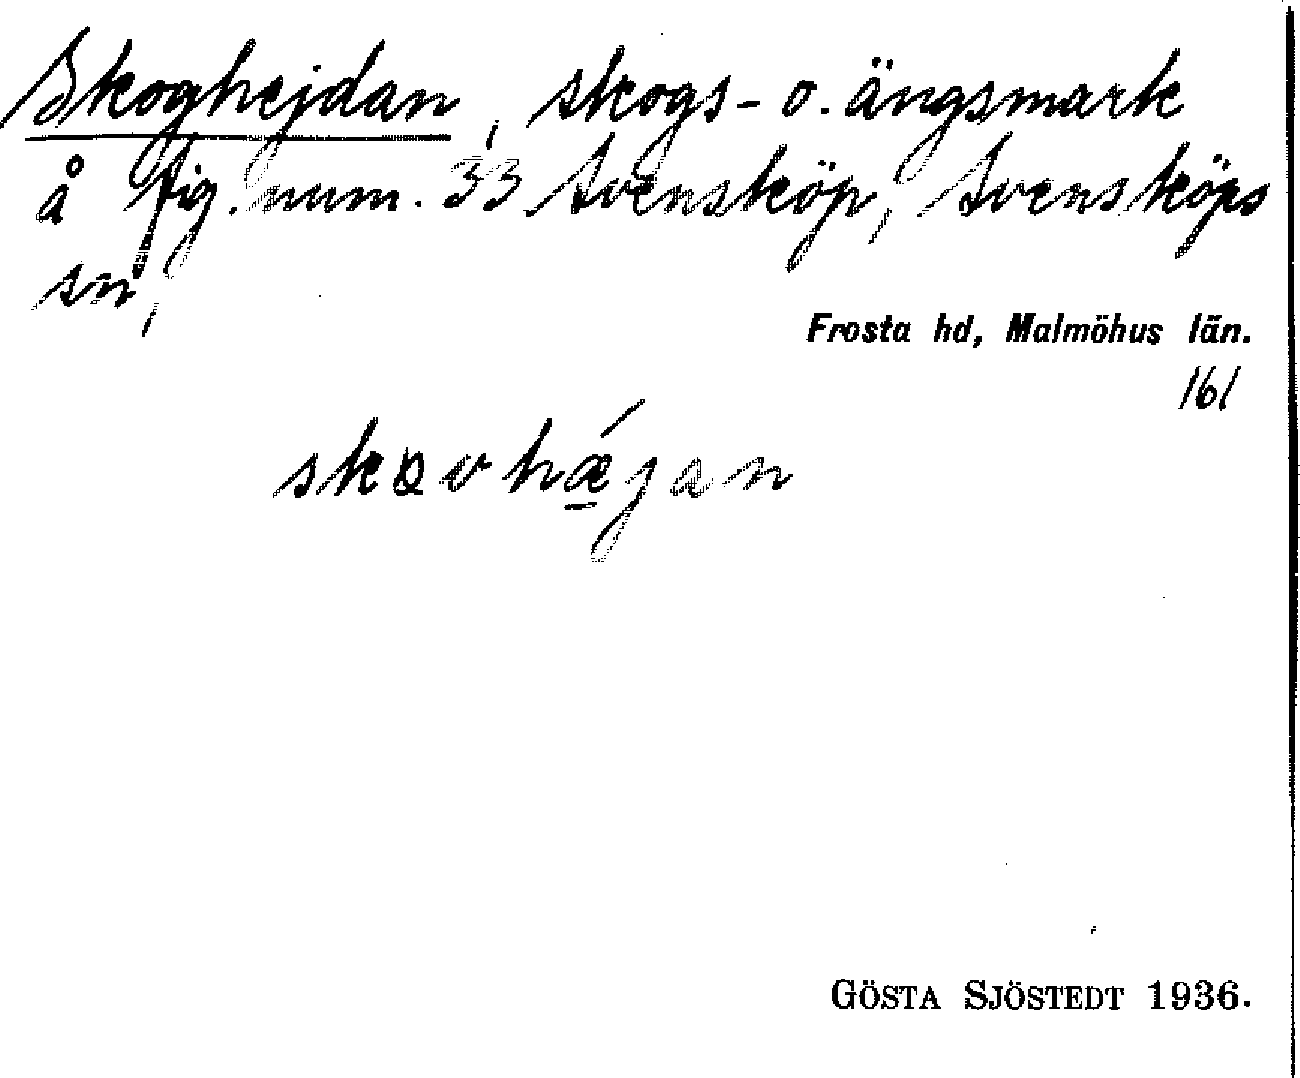 Skoghejdan, skogs- o. ängsmark
å fig. num. 33 Svensköp, Svensköps
sn,
Frosta hd, Malmöhus län.
161
skɒvhǽjan
GÖSTA SJÖSTEDT 1936.